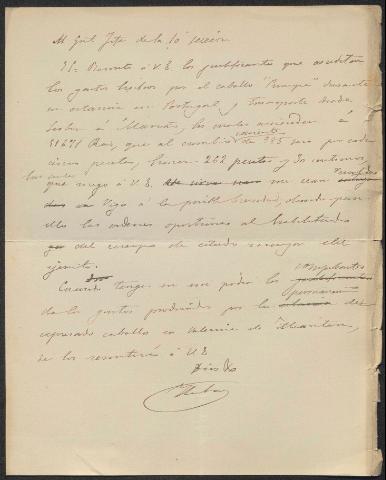 Al Gral Jefe de la 10ª sección
Remito á V.E. los justificantes que acreditan
los gastos hechos por el caballo "Bunqué" durante
su estancia en Portugal y transporte desde
Lisboa á Marvão, los cuales ascienden á
51671 Reis, que al cambio corriente de 985 reis por cada
cinco pesetas, hacen 262 pesetas y 30 centimos
las cuales
que ruego á V.E. me sean
Vigo á la posible brevedad, dando para
ello las ordenes oportunas al habilitado
del cuerpo de estado mayor del
ejército.
Cuando tenga en mi poder los justificantes
de los gastos producidos por la permanencia del
expresado caballo en Valencia de Alcantara,
se los remitiré á V.E
Dios &ª